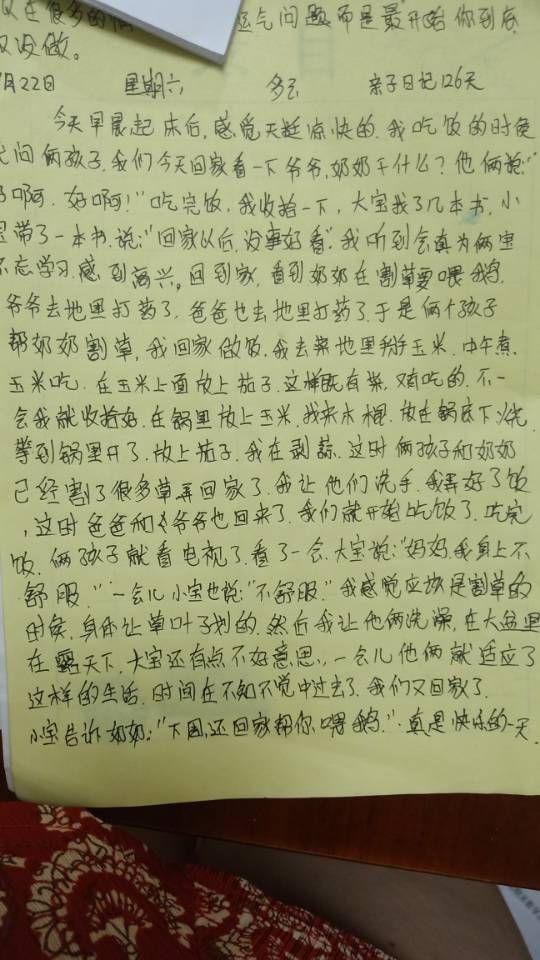 在很多的
运气问题而是最开始你到底
没做。
月22日 星期六 多云 亲子日记126天
今天早晨起床后,感觉天挺凉快的.我吃饭的时候
问俩孩子.我们今天回家看一下爷爷,奶奶干什么?他俩说:"
啊,好啊!"吃完饭,我收拾一下,大宝找了几本书.小
宝带了一本书.说:"回家以后,没事好看".我听到会真为俩宝
不忘学习,感到高兴。回到家,看到奶奶在割草要喂鹅.
爷爷去地里打药了.爸爸也去地里打药了.于是俩个孩子
帮奶奶割草,我回家做饭.我去菜地里掰玉米.中午煮.
玉米吃.在玉米上面放上茄子.这样既有菜.又有吃的.不一
会我就收拾好.在锅里放上玉米.我来木棍.放在锅底下烧.
等到锅里开了.放上茄子.我在剥蒜.这时俩孩子和奶奶
已经割了很多草弄回家了.我让他们洗手.我弄好了饭
,这时爸爸和爷爷也回来了.我们就开始吃饭了.吃完
饭.俩孩子就看电视了.看了一会.大宝说:"妈妈.我身上不
舒服."一会儿小宝也说:"不舒服."我感觉应该是割草的
时候.身体让草叶子划的.然后我让他俩洗澡,在大盆里
在露天下.大宝还有点不好意思.,一会儿他俩就适应了
这样的生活.时间在不知不觉中过去了.我们又回家了.
小宝告诉奶奶:"下周,还回家帮你喂鹅."真是快乐的一天.